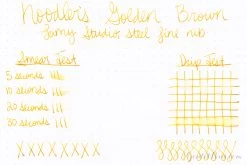 Noodler's Golden Brown
Lamy Studio, steel fine nib
Smear Test
Drip Test
5 seconds
10 seconds
20 seconds
30 seconds